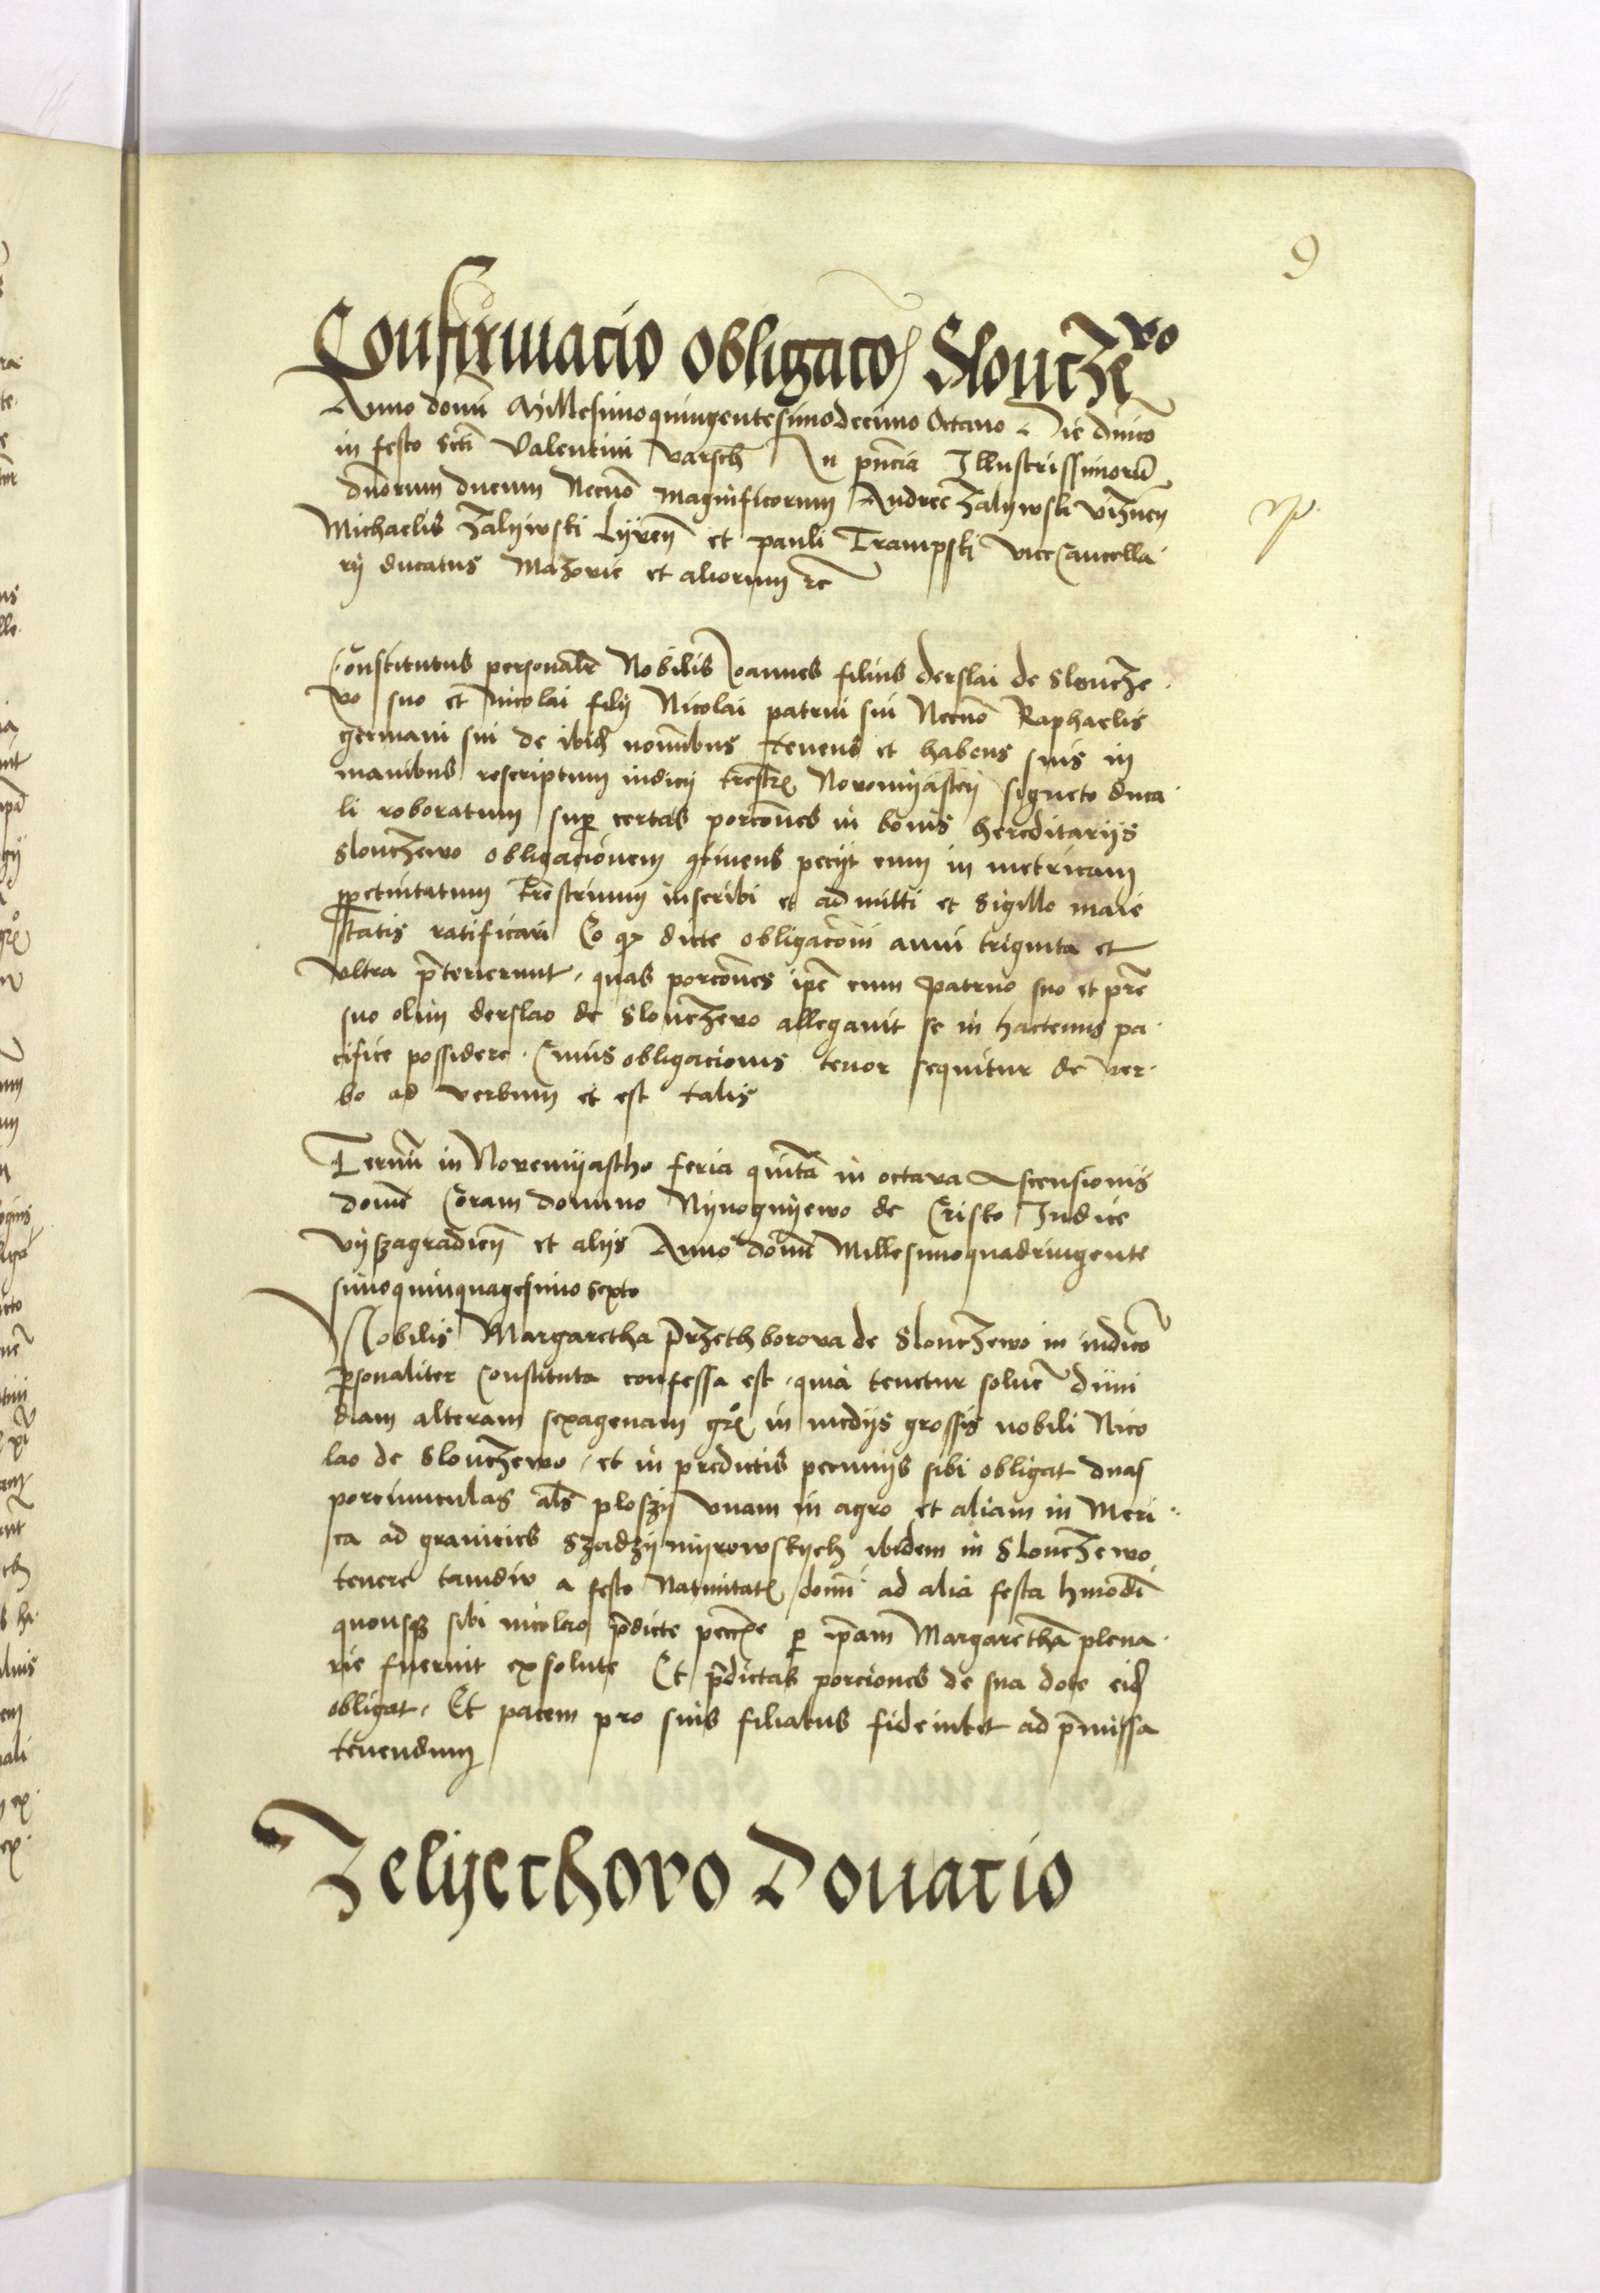 9
Confirmacio obligaco͞ Slontzewo
Anno domı̄ Millesimoquingentesimodecimo Octavo Die dnico
in festo scti Valentini Varsch In pn̄cia Illustrissimorū
dn̄orum ducum Necnō magnificorum Andree Zalywski vizney
Michaelis Zalywski Lyven̄ et pauli Trampski vice Cancella
rij ducatus Mazovie et aliorum rc
Constitutus personalr̄ Nobilis Joannes filius derslai de Slontze
vo suo et Nicolai filij Nicolai patrui sui Necnō Raphaelis
germani sui de ibid noı̄bus tenens et habens suis in
manibus rescriptum iudicij trestr̄ Novomyasten̄ signeto duca
li roboratum sup certas porcōnes in bonis hereditarijs
Slontzewo obligacionem stinens pecijt eum in metricam
ppetuitatum trestrium inscribi et admitti et sigillo maie
statis ratificari Eo qz dicte obligacōni anni triginta et
ultra pr̄terierunt, quas porcōnes ip̄e cum patruo suo et pr̄e
suo olim derslao de Slontzevo allegavit se in hactenus pa
cifice possidere. Cuius obligacionis tenor sequitur de ver
bo ad verbum et est talis
Termı̄ in Novemyastho feria quı̄ta in octava Ascensionis
domı̄ Coram domino Nynognyewo de Cristo Judice
vyszagradien̄ et alijs Anno domı̄ Millesimoquadringente
simoquinquagesimo sexto
Nobilis Margaretha Przethborova de Slontzewo in iudicō
psonaliter Constituta confessa est, quia tenetur solvē dimi
diam alteram sexagenam gr̄ in medijs grossis nobili Nico
lao de Slontzewo, et in predictis pecunijs sibi obligat duas
porciunculas als̄ ploszy unam in agro et aliam in Meri
ca ad granicies Szadzymyrowskych ibidem in Slontzewo
tenere tamdiu a festo Natiuitat̄ domı̄ ad alia festa hmōdi
quousqz sibi nicolao pd̄icte pecc̄ie p ip̄am Margarethā plena
rie fuerint exsolute Et pd̄ictas porciones de sua dote eid̄
obligat. Et pacem pro suis filiabus fideiubet ad pm̄issa
tenendum
Zelyechovo Donacio